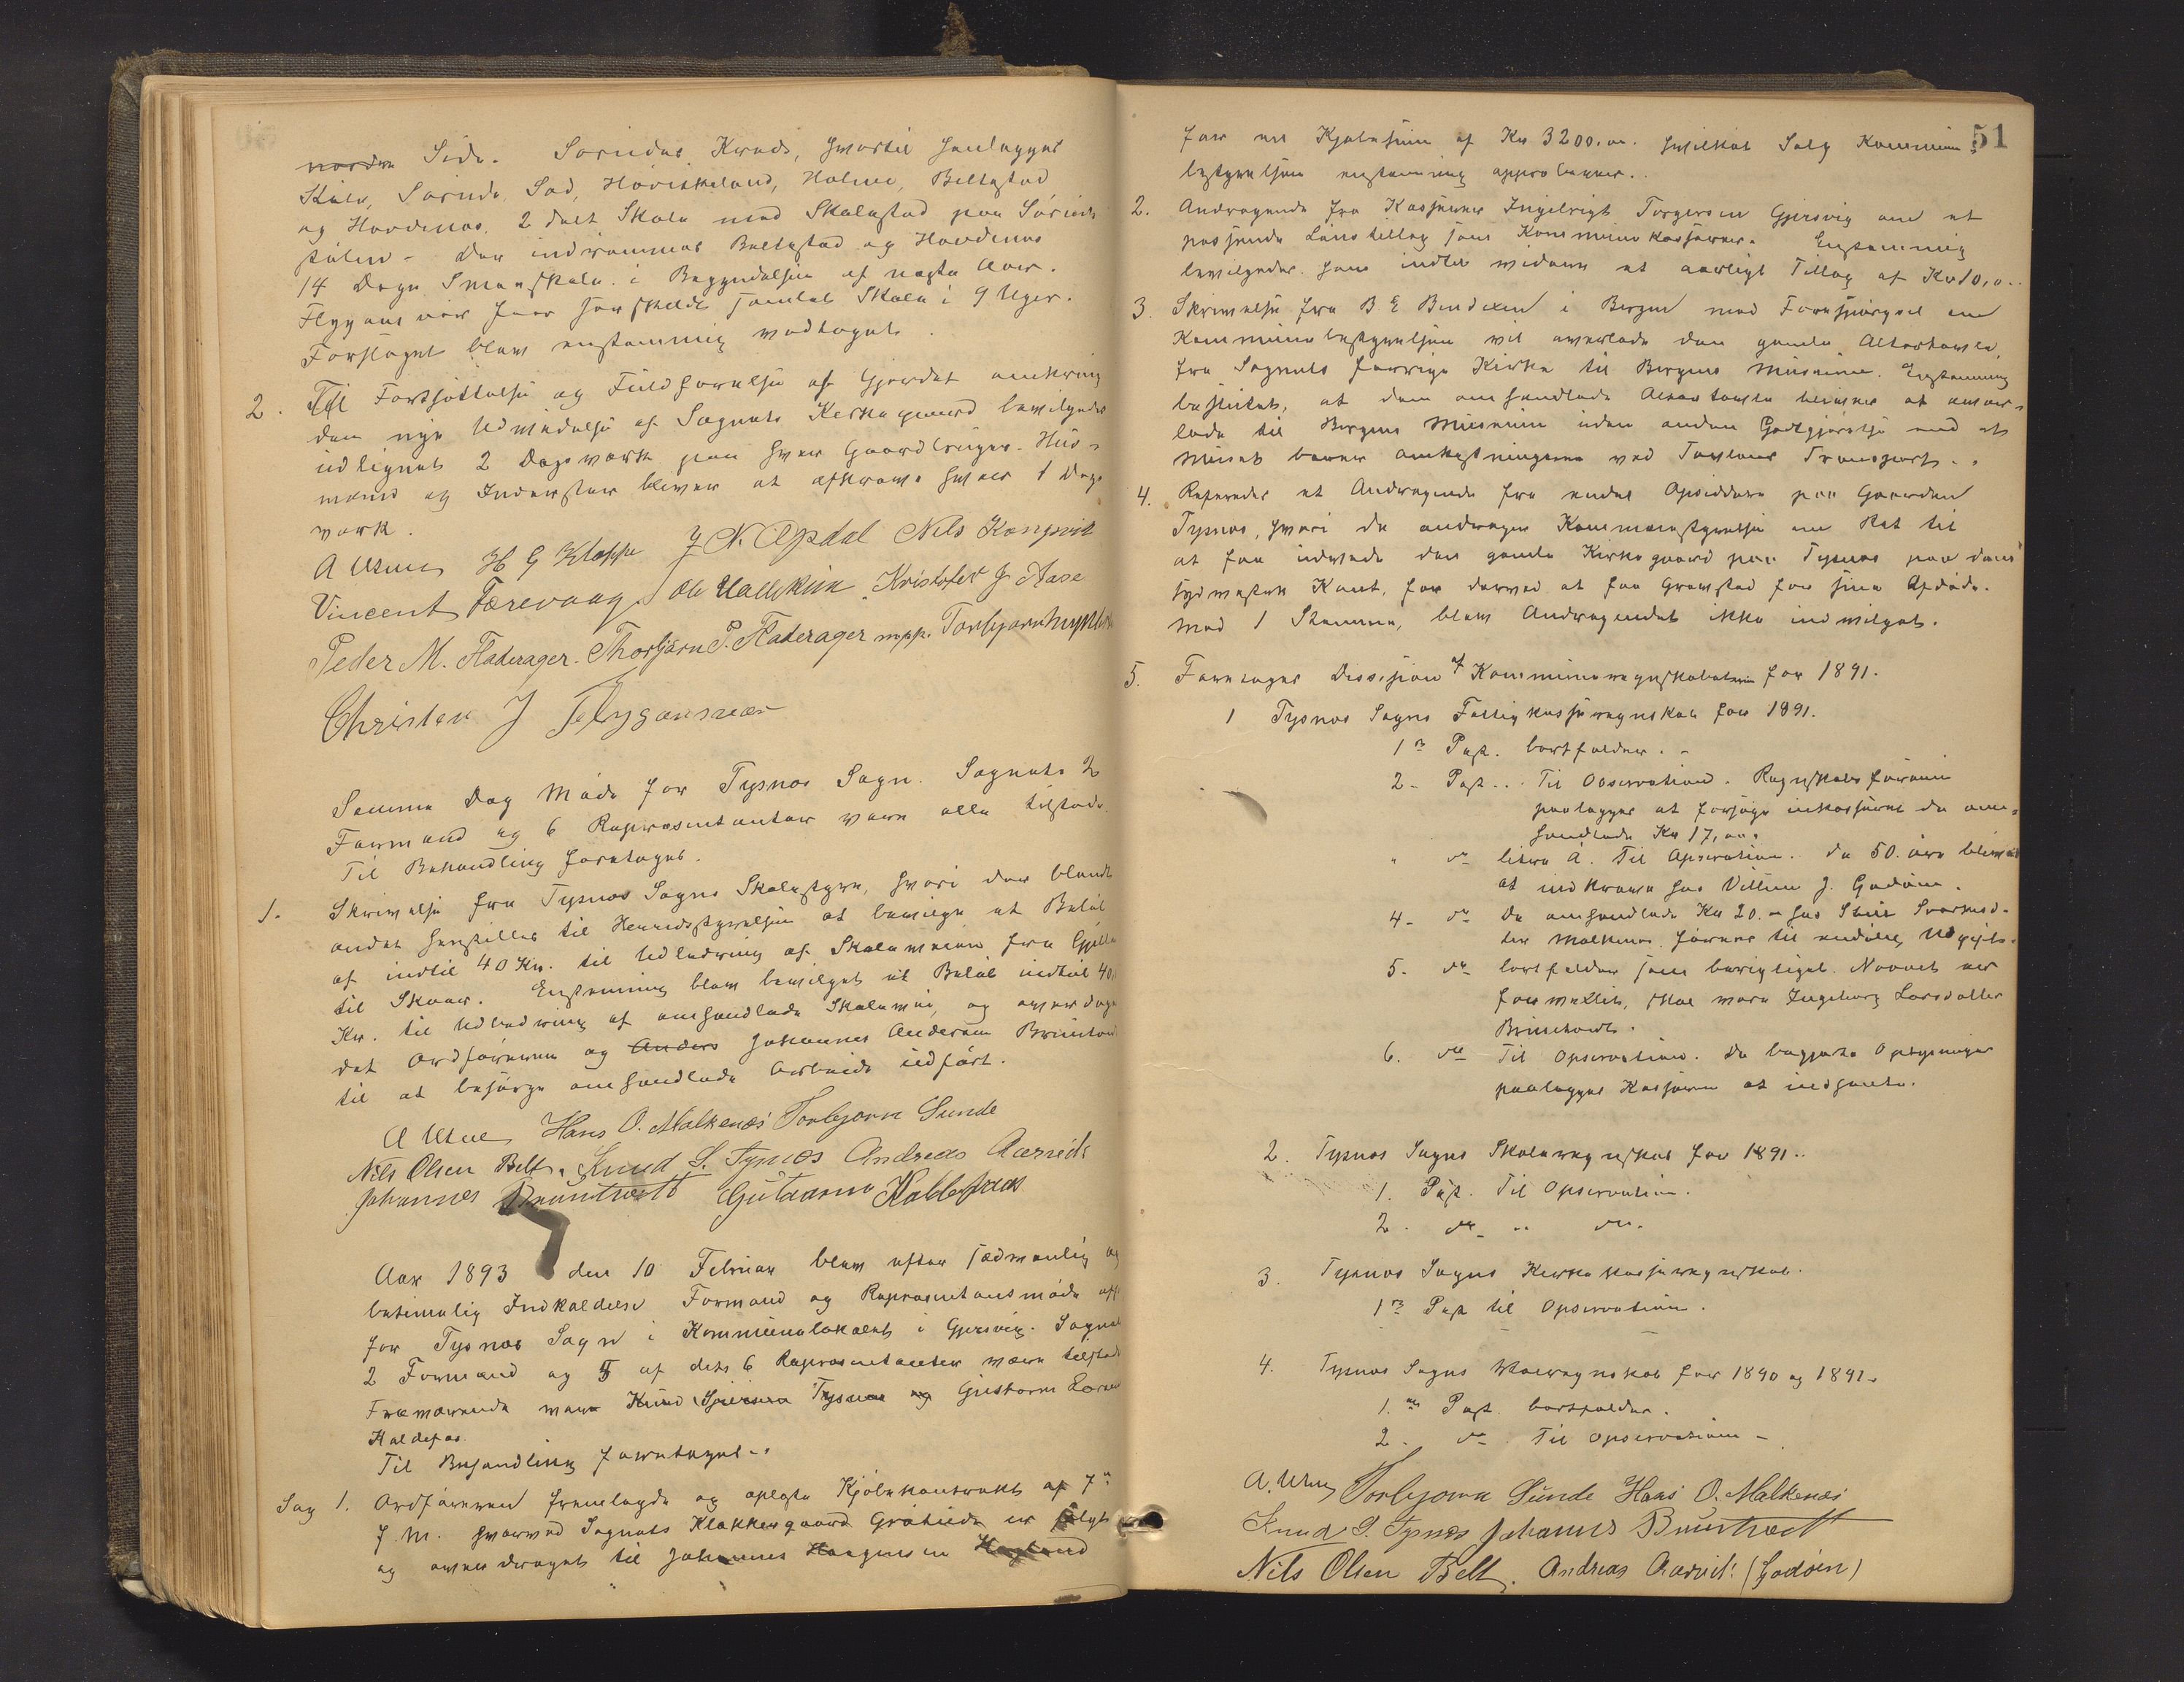 norden Side. Sørudes Kreds, hvortil henlægges
Skaar, Sørude, Sæd, Høviskeland, Holme, Beltestad
og Hovdenæs. 2 delt Skole med Skolestad paa Søreide
stølen - Der indrømmes Beltestad og Hovdenæs
14 Dages Smaaskole i Begyndelsen af næste Aar.
Flygansvær faar særskildt samlet Skole i 9 Uger.
Forslaget blev enstemmig vedtaget.
2. Til Fortsættelse og Fuldførelse af Gjerdet omkring
den nye Udvidelse af Sognets Kirkegaard bevilgedes
udlignet 2 Dagsværk paa hver Gaardbruger. Hus-
mænd og Inderster bliver at afkræve hver 1 Dags
værk.
A Utne H G Kloppe J N. Opdal Nils Kongsvik
Vincent Færevaag Ole Kristofer J. Aase
Peder M. Flaterager. Thorbjørn P. Flaterager mpp. Torbjørn
Christen J Flygansvær
Samme Dag Møde for Tysnes Sogn. Sognets 2
Formænd og 6 Repræsentanter vare alle tilstede.
Til Behandling foretoges.
1. Skrivelse fra Tysnes Sogns Skolestyre, hvori der blandt
andet henstilles til Herredsstyrelsen at bevilge et Beløb
af indtil 40 Kr. til Udbedring af Skoleveien fra Gjelle
til Skaar. Enstemmig blev bevilget et Beløb indtil 40,
Kr. til Udbedring af omhandlede Skolevei, og overdroges
det Ordføreren og Anders Johannes Andersen Bruntvedt
til at besørge omhandlede Arbeide udført.
A Utne Hans O. Malkenæs Torbjørn Sunde
Nils Olsen Belt. Knud S. Tysnes Andreas Aarvik
Johannes Bruntvedt Gutaarm Haldefaas
Aar 1893 den 10 Februar blev efter sædvanlig og
betimelig Indkaldelse Formand og Repræsentantmøde afh
for Tysnes Sogn i Kommunelokalet i Gjersvig. Sognets
2 Formænd og 5 af dets 6 Repræsentanter vare tilstede
Fraværende var Knud Sjursen Tysnes og Guttorm Larsen
Haldefos
Til Behandling foretoges..
Sag 1. Ordføreren fremlagde og oplæste Kjøbekontrakt af 7de
f. M. hvorved Sognets Klokkergaard Grøteide er solgt
og overdraget til Johannes Haagensen Hagland
51
for en Kjøbesum af Kr 3200.00. hvilket Salg Kommune
bestyrelsen enstemmig approberer.
2. Andragende fra Kasserer Ingebrigt Torgersen Gjersvig om et
passende Lønstillæg som Kommunekasserer. Enstemmig
bevilgedes ham indtil videre et aarligt Tillæg af Kr 10,0..
3. Skrivelse fra B E Bendixen i Bergen med Forespørgsel om
Kommunebestyrelsen vil overlade den gamle Altertavle,
fra Sognets forrige Kirke til Bergens Museum. Enstemmig
besluttet, at den omhandlede Altertavle bliver at over-
lade til Bergens Museum uden anden Godtgjørelse end at
Museet bærer omkostningerne ved Tavlens Transport..
4. Refereredes et Andragende fra endel Opsiddere paa Gaarden
Tysnes, hvori de andrager Kommunestyrelsen om Ret til
at faa udvide den gamle Kirkegaard paa Tysnes paa dens
sydvestre Kant, for derved at faa Gravsted for sine Afdøde.
Med 1 Stemme, blev Andragendet ikke indvilget.
5. Foretoges Decision af Kommuneregnskaberne for 1891.
1 Tysnes Sogns Fattigkasseregnskab for 1891.
1ste Post. bortfalder. -
2 - Post.. Til Observation. Regnskabsføreren
paalægges at forsøge inkasseret de om-
handlede Kr 17,00.
" do litra a. Til Opservation. De 50. øre bliver
at indkræve hos Villum J. Godøen.
4 - do De omhandlede Kr 20.00 hos Siri Sjursdat-
ter Malkenes føres til endelig Udgift.
5. do bortfalder som berigtiget. Navnet er
forvexlet, skal være Ingeborg Larsdatter
Bruntvedt.
6. do Til Opservation. De begjærte Oplysninger
paalægges Kasseren at indhente.
2. Tysnes Sogns Skoleregnskab for 1891..
1. Post. Til Opservation.
2. do " do.
3. Tysnes Sogns Kirkekasseregnskab.
1ste Post til Opservation.
4. Tysnes Sogns Veiregnskab for 1890 og 1891.
1. ste Post. bortfalder.
2 - do. Til Opservation -
A. Utne Torbjørn Sunde Hans O. Malkenæs
Knud S. Tysnes Johannes Bruntvedt
Nils Olsen Belt. Andreas Aarvik (Godøen)